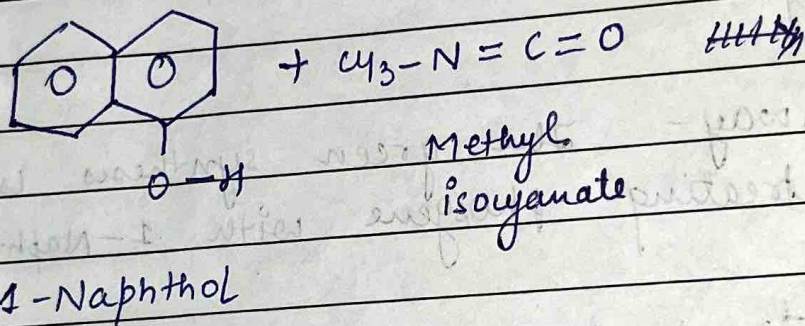 + CH3-N=C=O
O-H
Methyl
isocyanate
1-Naphthol